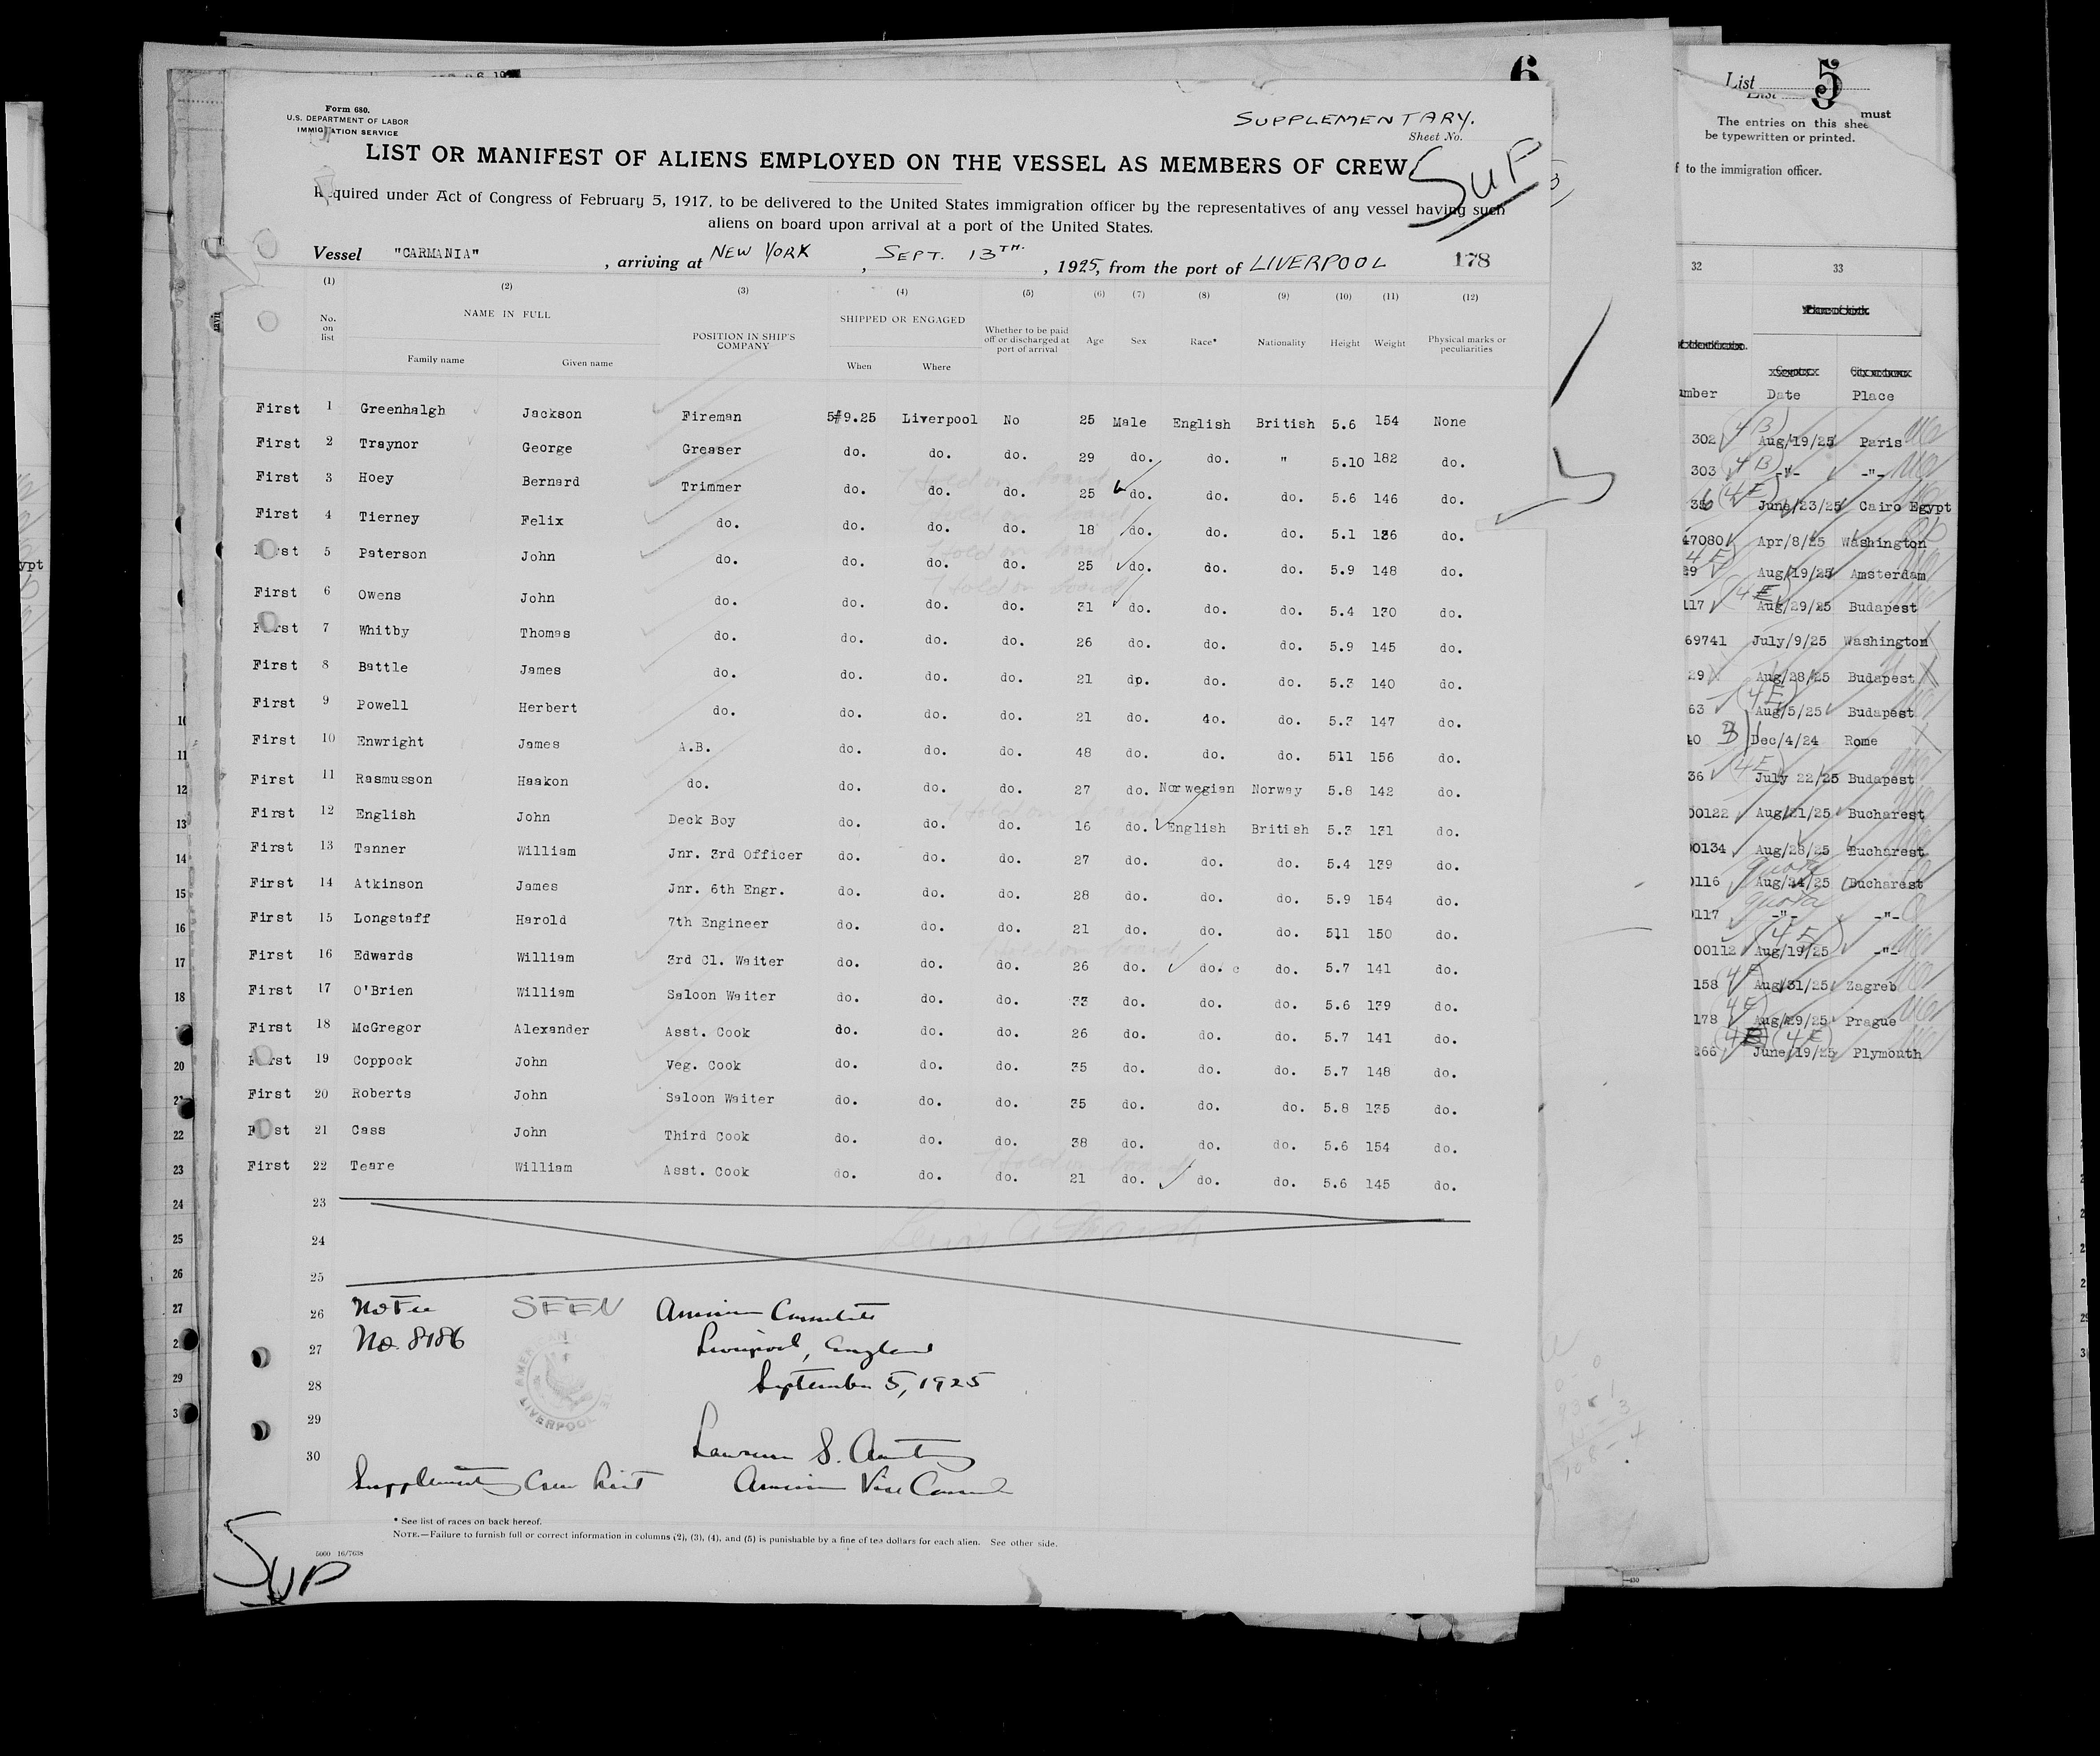 6
SUPPLEMENTARY.
Form 680.
U.S. DEPARTMENT OF LABOR
IMMIGRATION SERVICE
Sheet No.
LIST OR MANIFEST OF ALIENS EMPLOYED ON THE VESSEL AS MEMBERS OF CREW
SUP
Required under Act of Congress of February 5, 1917, to be delivered to the United States immigration officer by the representatives of any vessel having such
aliens on board upon arrival at a port of the United States.
Vessel "CARMANIA", arriving at NEW YORK, SEPT. 13TH., 1925, from the port of LIVERPOOL 178
(1) (2) (3) (4) (5) (6) (7) (8) (9) (10) (11) (12)
No. on list NAME IN FULL Family name Given name POSITION IN SHIP'S COMPANY SHIPPED OR ENGAGED When Where Whether to be paid off or discharged at port of arrival Age Sex Race* Nationality Height Weight Physical marks or peculiarities
First 1 Greenhalgh Jackson Fireman 5/9.25 Liverpool No 25 Male English British 5.6 154 None
First 2 Traynor George Greaser do. do. do. 29 do. do. " 5.10 182 do.
First 3 Hoey Bernard Trimmer do. do. do. 25 do. do. do. 5.6 146 do.
First 4 Tierney Felix do. do. do. do. 18 do. do. do. 5.1 136 do.
First 5 Paterson John do. do. do. do. 25 do. do. do. 5.9 148 do.
First 6 Owens John do. do. do. do. 31 do. do. do. 5.4 130 do.
First 7 Whitby Thomas do. do. do. do. 26 do. do. do. 5.9 145 do.
First 8 Battle James do. do. do. do. 21 do. do. do. 5.3 140 do.
First 9 Powell Herbert do. do. do. do. 21 do. do. do. 5.3 147 do.
First 10 Enwright James A.B. do. do. do. 48 do. do. do. 511 156 do.
First 11 Rasmusson Haakon do. do. do. do. 27 do. Norwegian Norway 5.8 142 do.
First 12 English John Deck Boy do. do. do. 16 do. English British 5.3 131 do.
First 13 Tanner William Jnr. 3rd Officer do. do. do. 27 do. do. do. 5.4 139 do.
First 14 Atkinson James Jnr. 6th Engr. do. do. do. 28 do. do. do. 5.9 154 do.
First 15 Longstaff Harold 7th Engineer do. do. do. 21 do. do. do. 511 150 do.
First 16 Edwards William 3rd Cl. Waiter do. do. do. 26 do. do. do. 5.7 141 do.
First 17 O'Brien William Saloon Waiter do. do. do. 33 do. do. do. 5.6 139 do.
First 18 McGregor Alexander Asst. Cook do. do. do. 26 do. do. do. 5.7 141 do.
First 19 Coppock John Veg. Cook do. do. do. 35 do. do. do. 5.7 148 do.
First 20 Roberts John Saloon Waiter do. do. do. 35 do. do. do. 5.8 135 do.
First 21 Cass John Third Cook do. do. do. 38 do. do. do. 5.6 154 do.
First 22 Teare William Asst. Cook do. do. do. 21 do. do. do. 5.6 145 do.
23
24
25
26 No Fee SEEN American Consulate
27 No. 8186 Liverpool, England
28 September 5, 1925
AMERICAN LIVERPOOL
29
30
Lawrence S. Armstrong
Supplementary Crew List American Vice Consul
* See list of races on back hereof.
NOTE.—Failure to furnish full or correct information in columns (2), (3), (4), and (5) is punishable by a fine of ten dollars for each alien. See other side.
5000 16/7638
SUP
List 5
The entries on this sheet must
be typewritten or printed.
to the immigration officer.
32 33
Date Place
302 Aug/19/25 Paris
303 -"- -"-
June/23/25 Cairo Egypt
47080 Apr/8/25 Washington
29 Aug/19/25 Amsterdam
117 Aug/29/25 Budapest
69741 July/9/25 Washington
29 Aug/28/25 Budapest
63 Aug/5/25 Budapest
40 Dec/4/24 Rome
36 July 22/25 Budapest
00122 Aug/21/25 Bucharest
00134 Aug/28/25 Bucharest
0116 Aug/24/25 Bucharest
0117 -"- -"-
00112 Aug/19/25 -"-
158 Aug/31/25 Zagreb
178 Aug/29/25 Prague
266 June/19/25 Plymouth